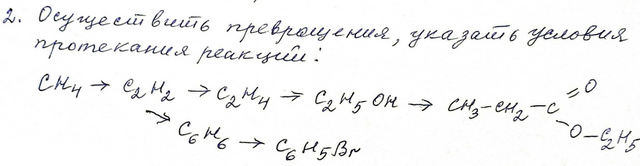 2. Осуществить превращения, указать условия
протекания реакций:
CH₄ → C₂H₂ → C₂H₄ → C₂H₅OH → CH₃-CH₂-C=O
O-C₂H₅
→ C₆H₆ → C₆H₅Br